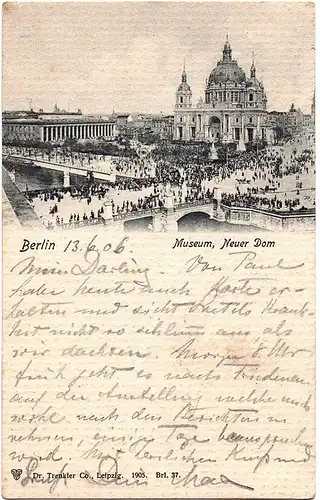 Berlin 13.6.06 Museum, Neuer Dom
Mein Darling. Von Paul
habe heute auch Karte er-
halten und sieht Krank-
heit nicht so schlimm aus als
wir dachten. Morgen 8 Uhr
früh geht es nach Friedenau
auf der Ausstellung welche
wohl nach den Berichten in
nehmen, einige Tage beanspruchen
wird. Mit herzlichem Kuß und
Gruß Dein Max
Dr. Trenkler Co., Leipzig. 1905. Brl. 37.